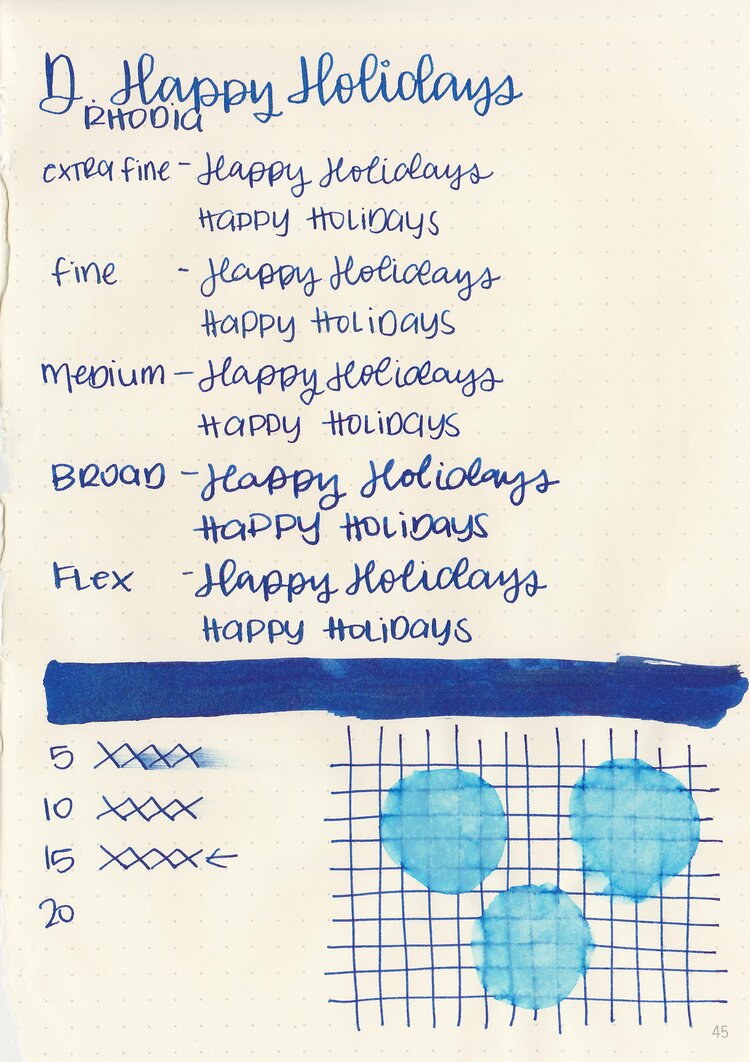 D. Happy Holidays
RHODIA
extra fine - Happy Holidays
Happy Holidays
fine - Happy Holidays
Happy Holidays
medium - Happy Holidays
Happy Holidays
BROAD - Happy Holidays
Happy Holidays
Flex - Happy Holidays
Happy Holidays
5 XXXX
10 XXXX
15 XXXX ←
20
45